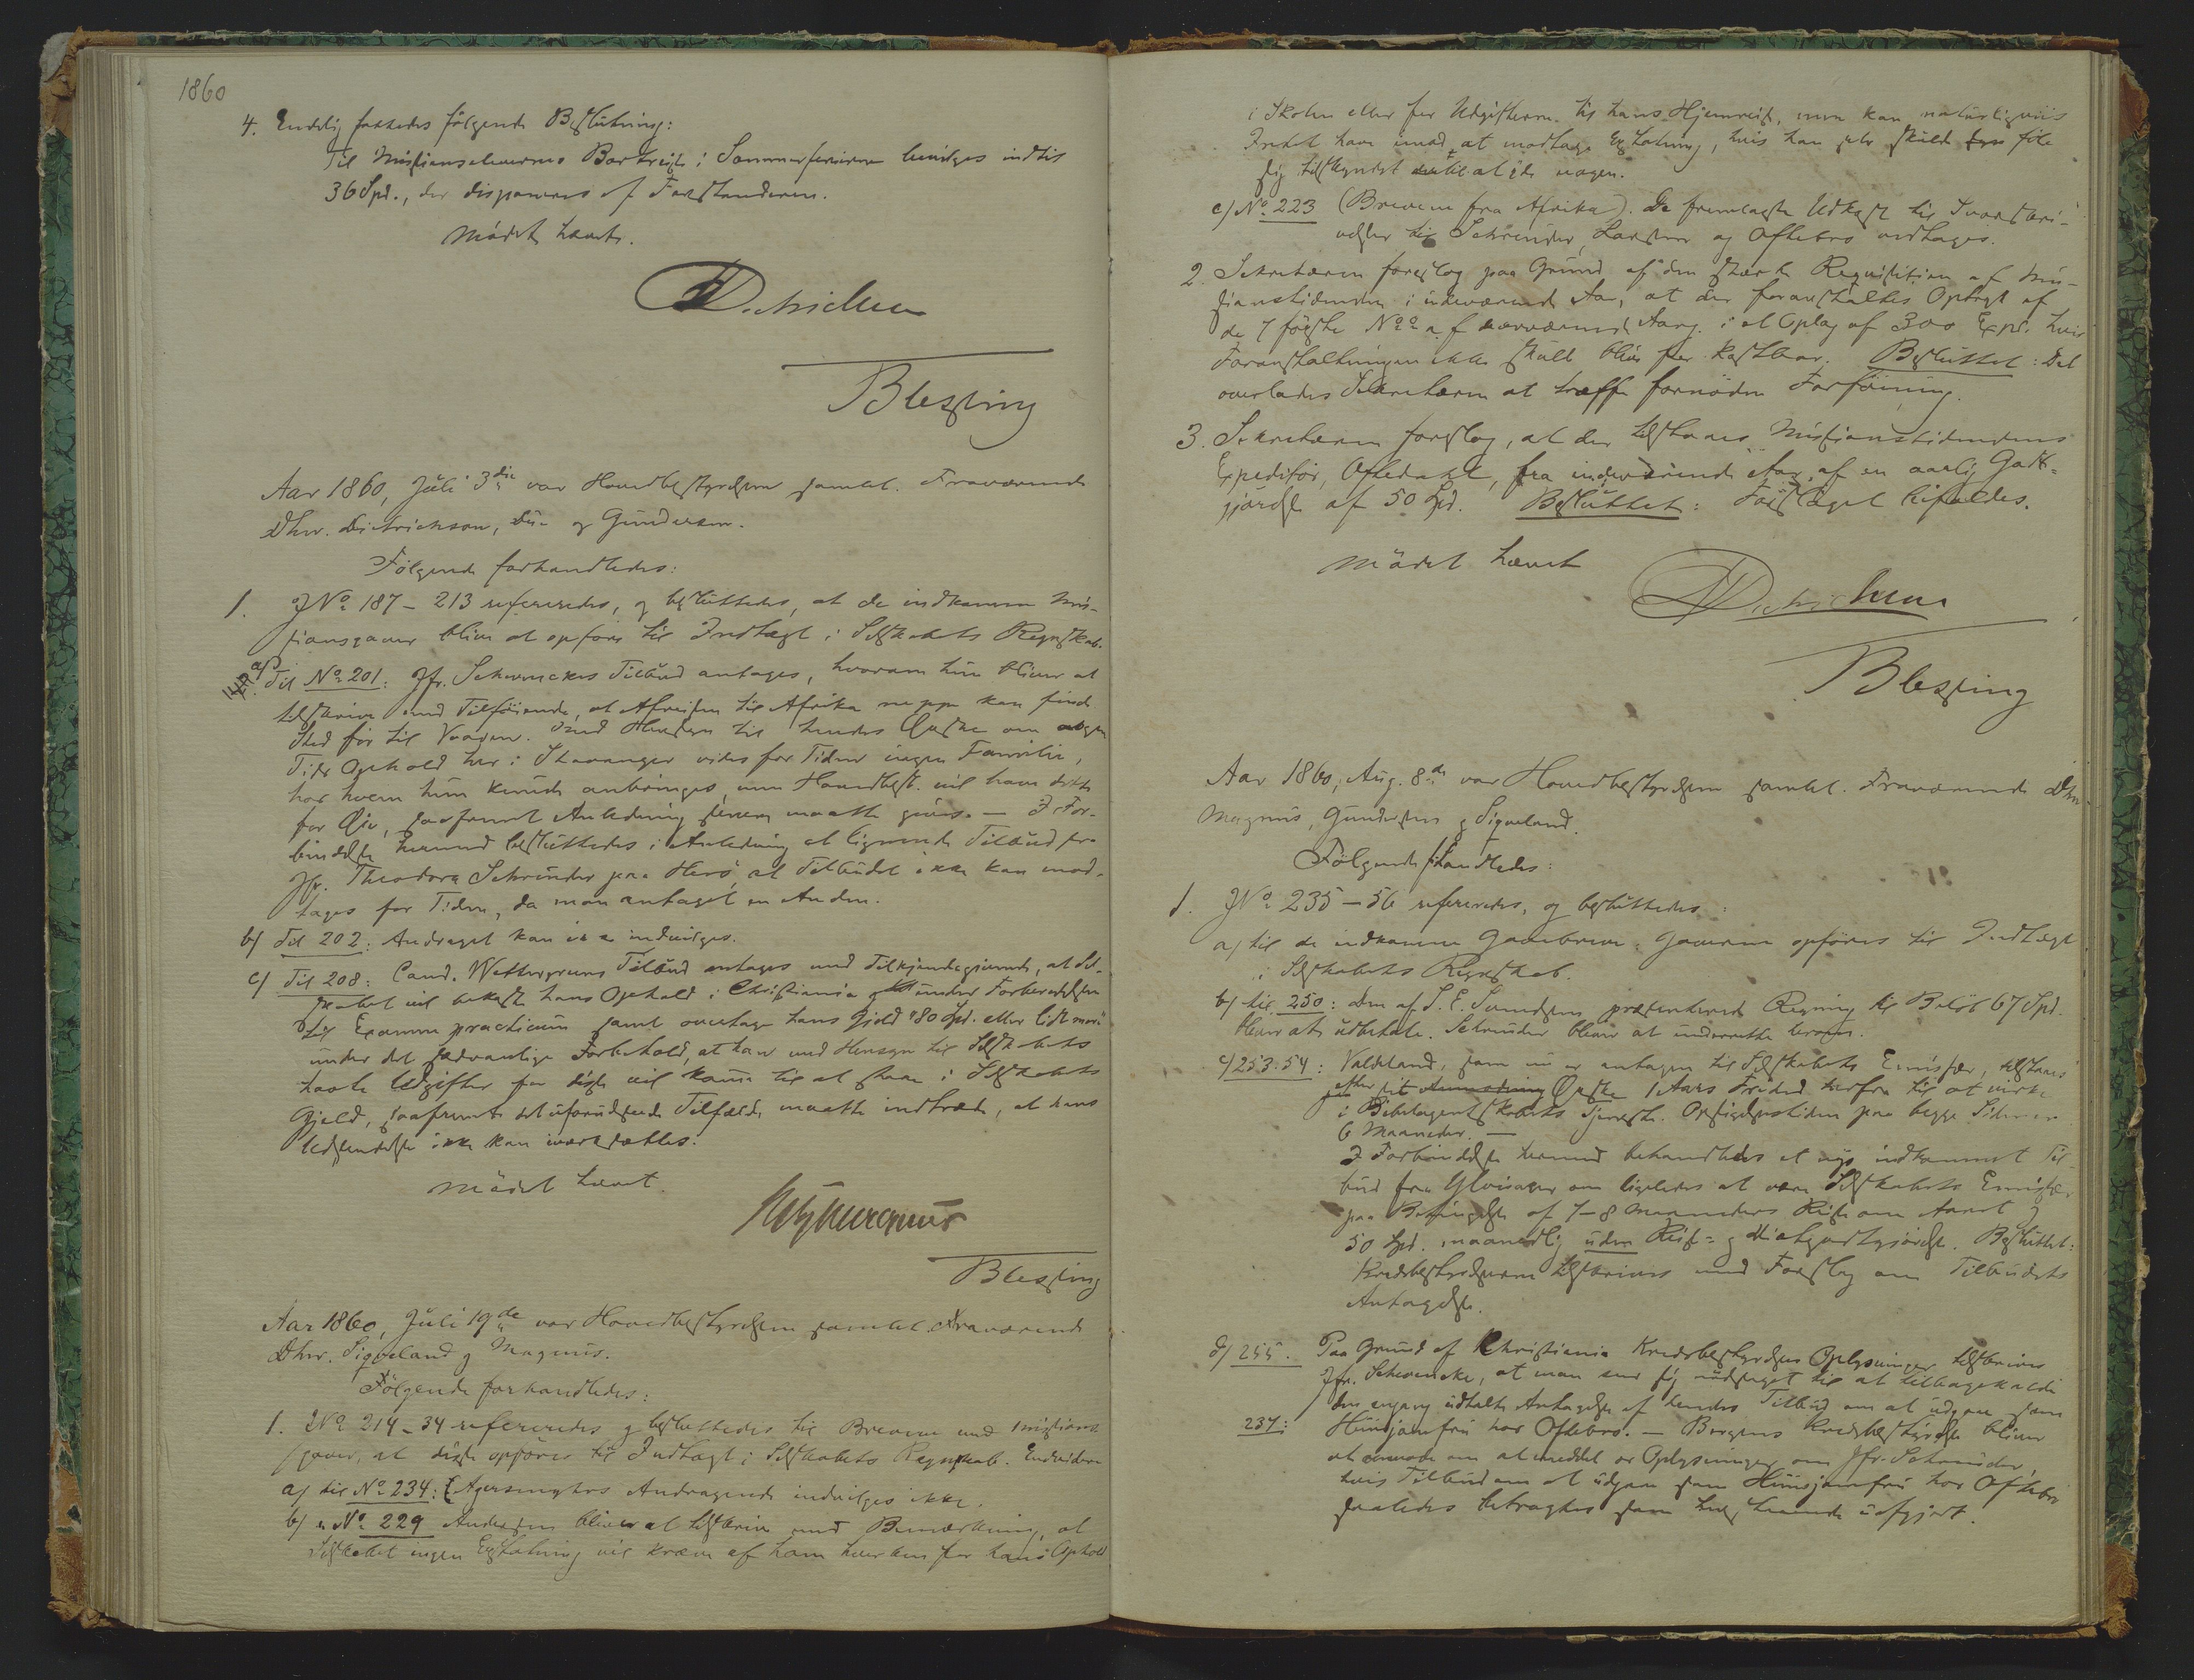 1860
4. Endelig fattedes følgende Beslutning:
Til Missionselevernes Bortreise i Sommerferierne bevilges indtil
36 Spd., der disponeres af Forstanderen.
Mødet hævet.
Dietrichson
Blessing
Aar 1860, Juli 3die var Hovedbestyrelsen samlet. Fraværende
Dhrr. Dietrichson, Due og Gundersen.
Følgende forhandledes:
1. JNo 187-213 refereredes, og besluttedes, at de indkomne Mis-
sionsgaver blive at opføre til Indtægt i Selskabets Regnskab.
a) Til No 201: Jfr. Schwenckes Tilbud antages, hvorom hun bliver at
tilskrive med Tilføiende, at Afreisen til Afrika neppe kan finde
Sted før til Vaaren. Med Hensyn til hendes Ønske om nogen
Tids Ophold her i Stavanger vides for Tiden ingen Familie,
hos hvem hun kunde anbringes, men Hovedbest. vil have dette
for Øie, saafremt Anledning dertil maatte gives. — I For-
bindelse hermed besluttedes i Anledning et lignende Tilbud fra
Jfr. Theodora Schrøuder paa Herø, at Tilbudet ikke kan mod-
tages for Tiden, da man antaget en Anden.
b) Til 202: Andraget kan ikke indvilges.
c) Til 208: Cand. Wettergreens Tilbud antages med Tilkjendegivende, at Sel-
skabet vil bekoste hans Ophold i Christiania under Forberedelsen
til Examen practicum samt overtage hans Gjeld "80 Spd. eller lidt mere"
under det sædvanlige Forbehold, at han med Hensyn til Selskabets
havte Udgifter for disse vil komme til at staae i Selskabets
Gjeld, saafremt det uforudseede Tilfælde maatte indtræde, at hans
Udsendelse ikke kan iværksættes.
Mødet hævet.
Blessing
Aar 1860, Juli 19de var Hovedbestyrelsen samlet. Fraværende
Dhrr. Siqveland og Magnus.
Følgende forhandledes:
1. JNo 214-34 refereredes og besluttedes til Brevene med Missions-
gaver, at disse opføres til Indtægt i Selskabets Regnskab. Endvidere
a) til No 234: Andragende indvilges ikke.
b) " No 229 Andersen bliver at tilskrive med Bemærkning, at
Selskabet ingen Erstatning vil kræve af ham hverken for hans Ophold
i Skolen eller for Udgifterne til hans Hjemreise, men kan naturligviis
Intet have imod at modtage Erstatning, hvis han selv skulde føle
sig tilskyndet til at yde nogen.
c) No 223 (Brevene fra Afrika). De fremlagte Udkast til Svarskri-
velser til Schreuder, Larsen og Oftebro vedtages.
2. Sekretæren foreslog paa Grund af den stærke Reqvisition af Mis-
sionstidenden i indeværende Aar, at der foranstaltes Optryk af
de 7 første Noo af nærværende Aarg. i et Oplag af 300 Expl. hvis
Foranstaltningen ikke skulde blive for kostbar. Besluttet: Det
overlades Sekretæren at træffe fornøden Forføining.
3. Sekretæren foreslog, at der tilstaaes Missionstidendens
Expeditør, Oftedahl, fra indeværende Aar af en aarlig Godt-
gjørelse af 50 Spd. Besluttet: Forslaget bifaldes.
Mødet hævet
Dietrichson
Blessing
Aar 1860, Aug. 8de var Hovedbestyrelsen samlet. Fraværende Dhrr.
Magnus, Gundersen og Siqveland.
Følgende forhandledes:
1. JNo 235-56 refereredes, og besluttedes:
a) til de indkomne Gavebreve: Gaverne opføres til Indtægt
i Selskabets Regnskab.
b) til 250: Den af S. E. Svendsen præsenterede Regning til Beløb 67 Spd.
bliver at udbetale. Schreuder bliver at underrette herom.
c) 253.54: Valdeland, som nu er antagen til Selskabets Emissær, tilstaaes
efter sit Ønske 1 Aars Frihed herfra til at virke
i Bibelagentskabets Tjeneste. Opsigelsestiden paa begge Sider er
6 Maaneder. —
I Forbindelse hermed behandledes et nys indkommet Til-
bud fra Gloisager om ligeledes at være Selskabets Emissær
paa Betingelse af 7-8 Maaneders Reise om Aaret og
50 Spd. maanedlig uden Reise- og Diætgodtgjørelse. Besluttet:
Kredsbestyrelserne tilskrives med Forslag om Tilbudets
Antagelse.
d) 255. Paa Grund af Christiania Kredsbestyrelses Oplysninger tilskrives
Jfr. Schwencke, at man seer sig nødsaget til at tilbagekalde
den engang udtalte Antagelse af hendes Tilbud om at udgaae som
237: Huusjomfru hos Oftebro. — Bergens Kredsbestyrelse bliver
at anmode om at meddele os Oplysninger om Jfr. Schreuder,
hvis Tilbud om at udgaae som Huusjomfru hos Oftebro
saaledes betragtes som henstaaende uafgjort.